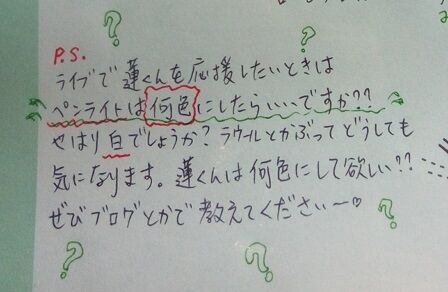 P.S.
ライブで蓮くんを応援したいときは
ペンライトは何色にしたらいいですか??
やはり白でしょうか?ラウールとかぶってどうしても
気になります。蓮くんは何色にして欲しい??
ぜひブログとかで教えてくださいー♡